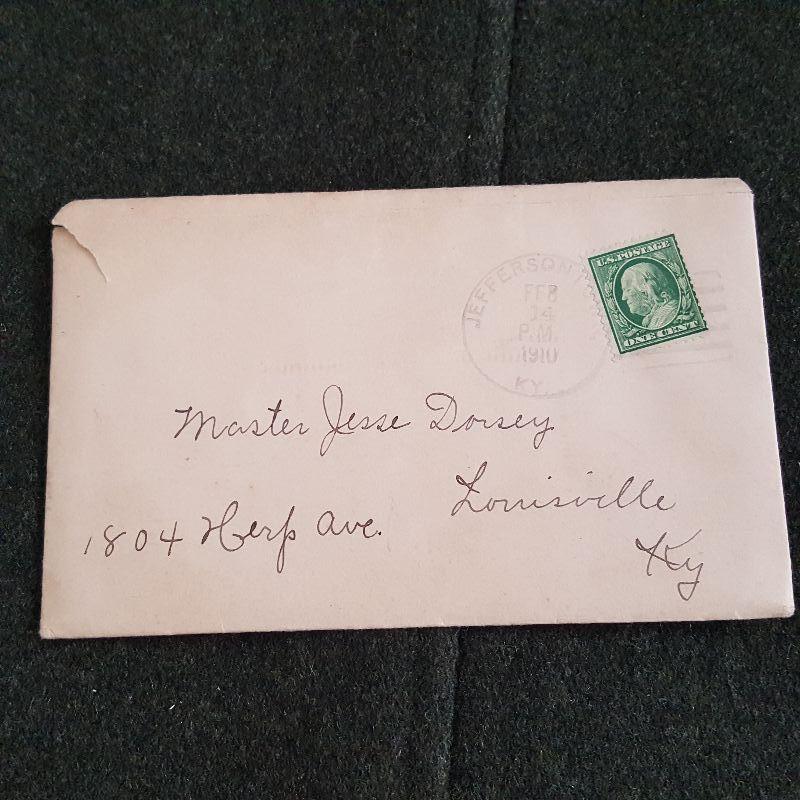 U.S. POSTAGE
ONE CENT
JEFFERSON
FEB
14
P.M.
1910
KY.
Master Jesse Dorsey
Louisville
1804 Herp Ave.
Ky